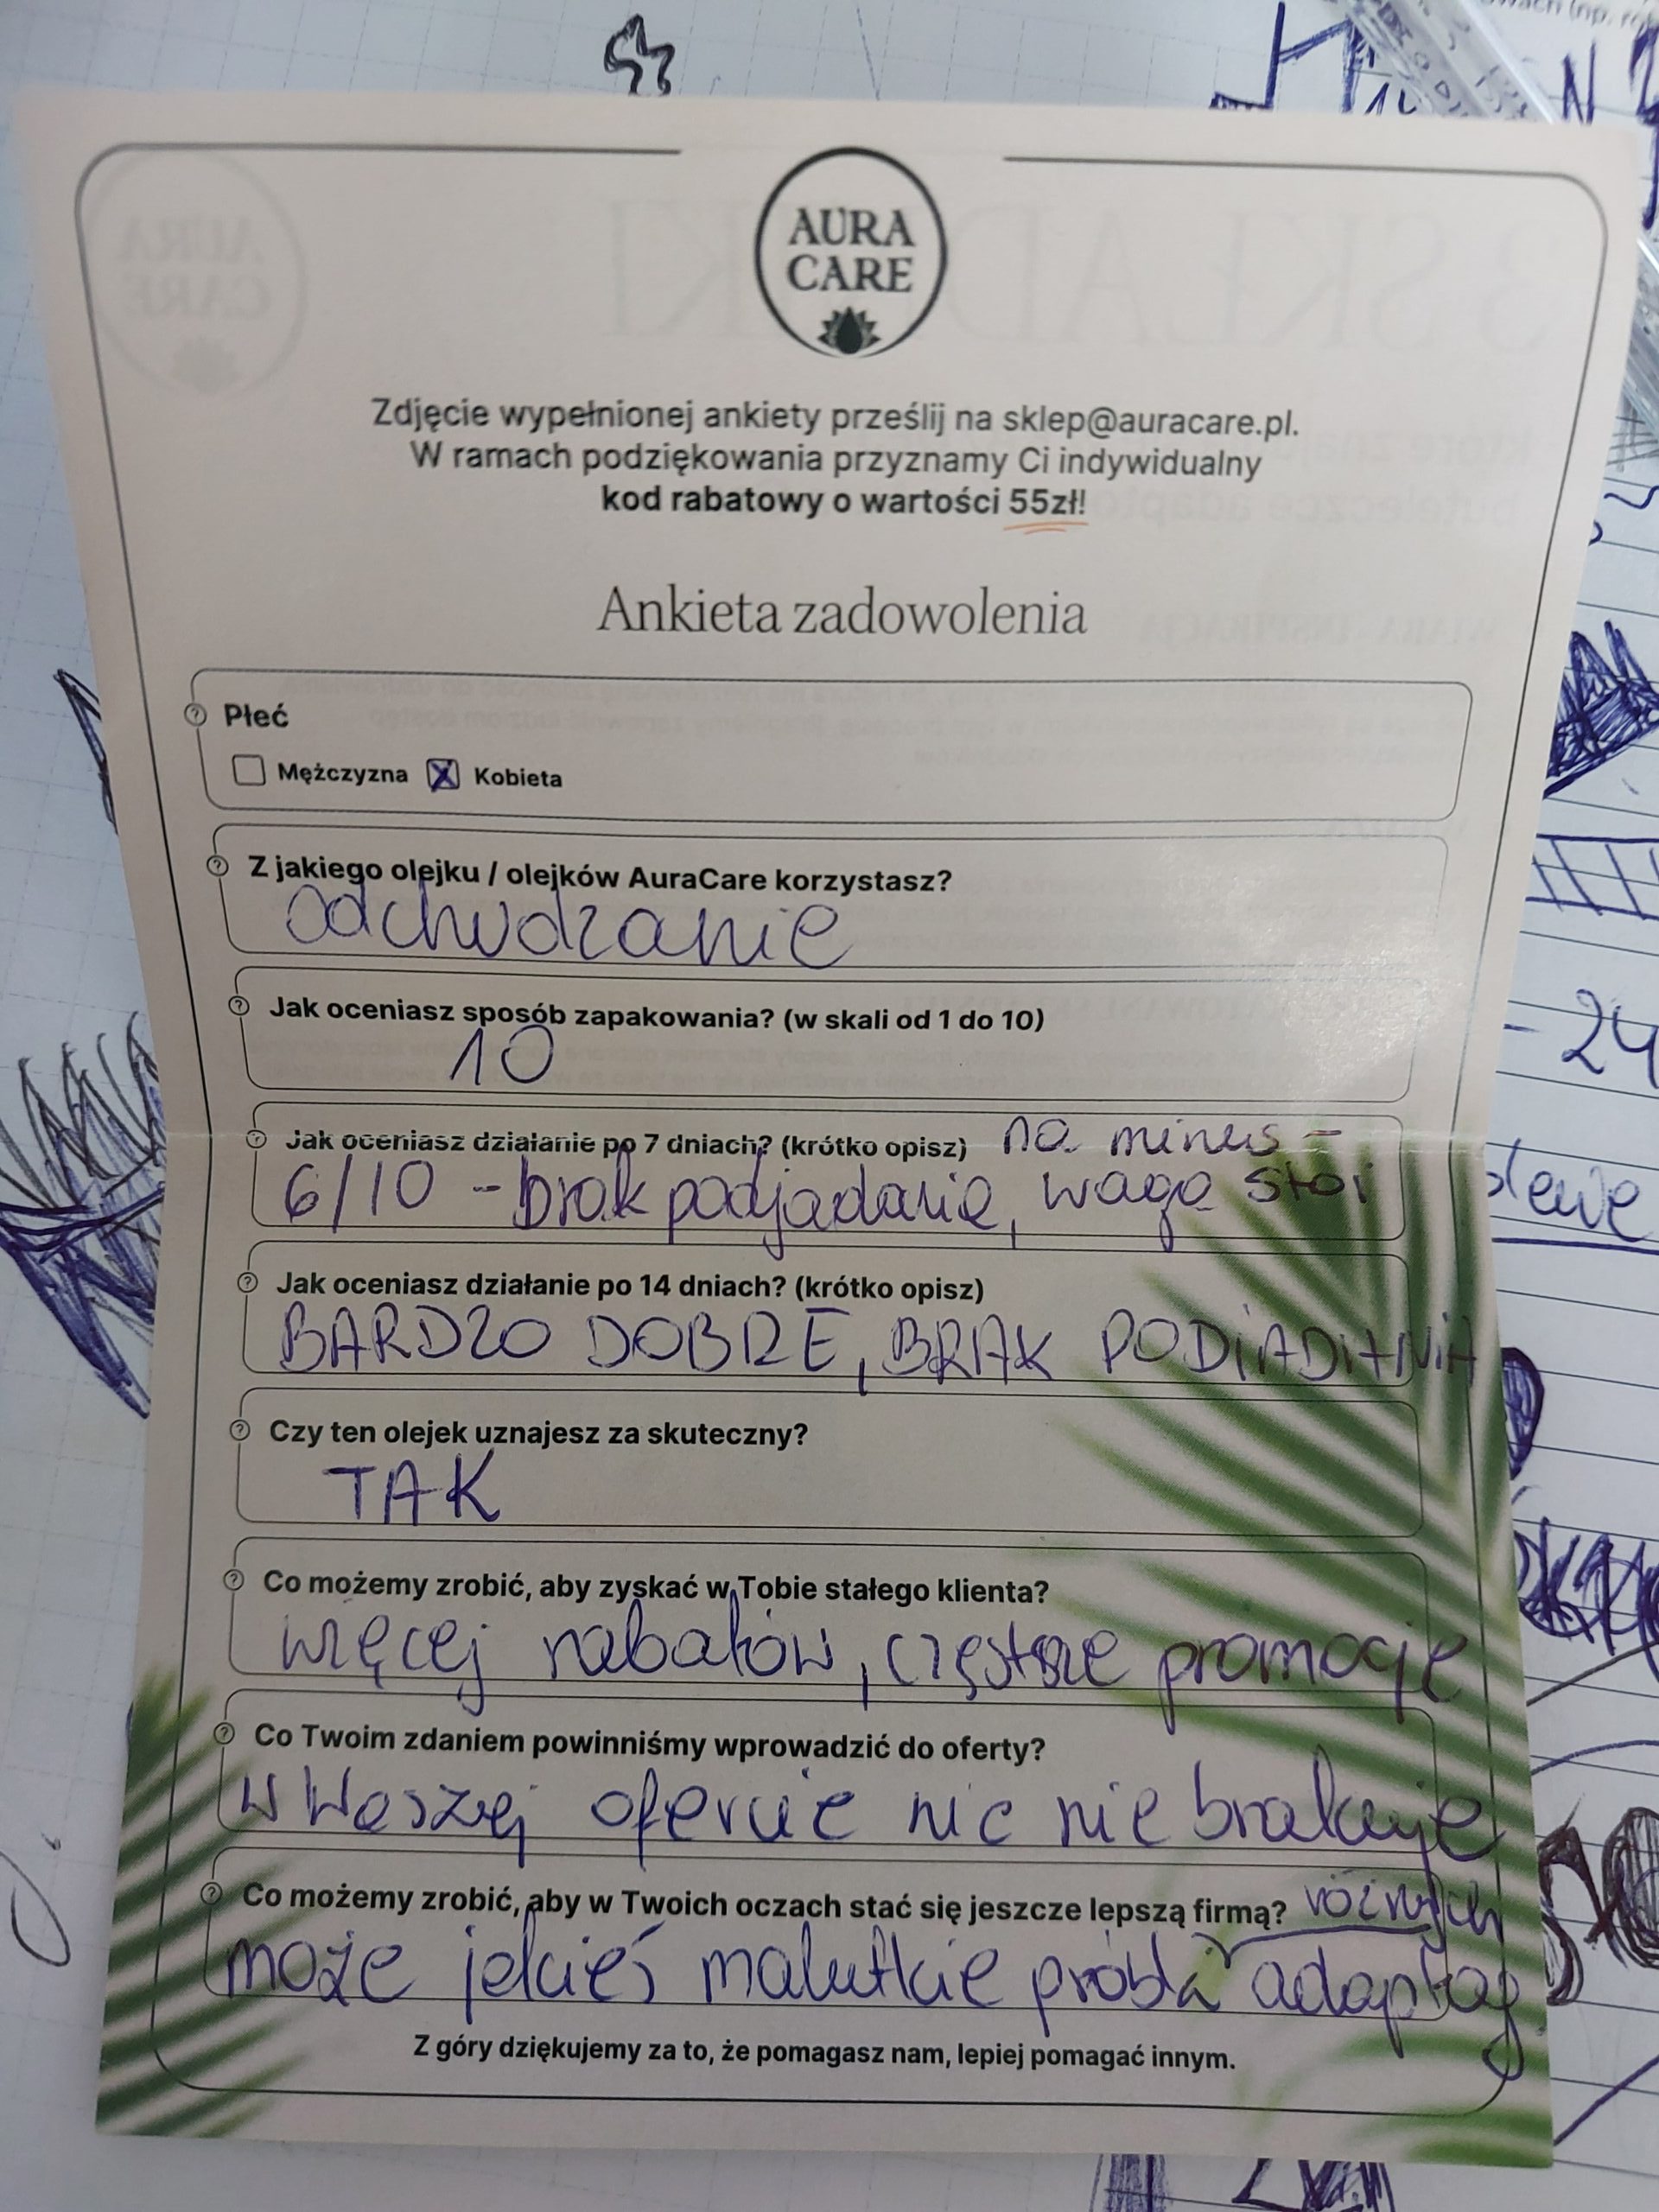 AURA
CARE
Zdjęcie wypełnionej ankiety prześlij na sklep@auracare.pl.
W ramach podziękowania przyznamy Ci indywidualny
kod rabatowy o wartości 55zł!
Ankieta zadowolenia
Płeć
Mężczyzna X Kobieta
Z jakiego olejku / olejków AuraCare korzystasz?
odchudzanie
Jak oceniasz sposób zapakowania? (w skali od 1 do 10)
10
Jak oceniasz działanie po 7 dniach? (krótko opisz) na minus -
6/10 - brak podjadania, waga stoi
Jak oceniasz działanie po 14 dniach? (krótko opisz)
BARDZO DOBRE, BRAK PODIADANIA
Czy ten olejek uznajesz za skuteczny?
TAK
Co możemy zrobić, aby zyskać w Tobie stałego klienta?
więcej rabatów, częstsze promocje
Co Twoim zdaniem powinniśmy wprowadzić do oferty?
w Waszej ofercie nic nie brakuje
Co możemy zrobić, aby w Twoich oczach stać się jeszcze lepszą firmą? różnych
może jakieś malutkie próbki adaptog
Z góry dziękujemy za to, że pomagasz nam, lepiej pomagać innym.
- 24